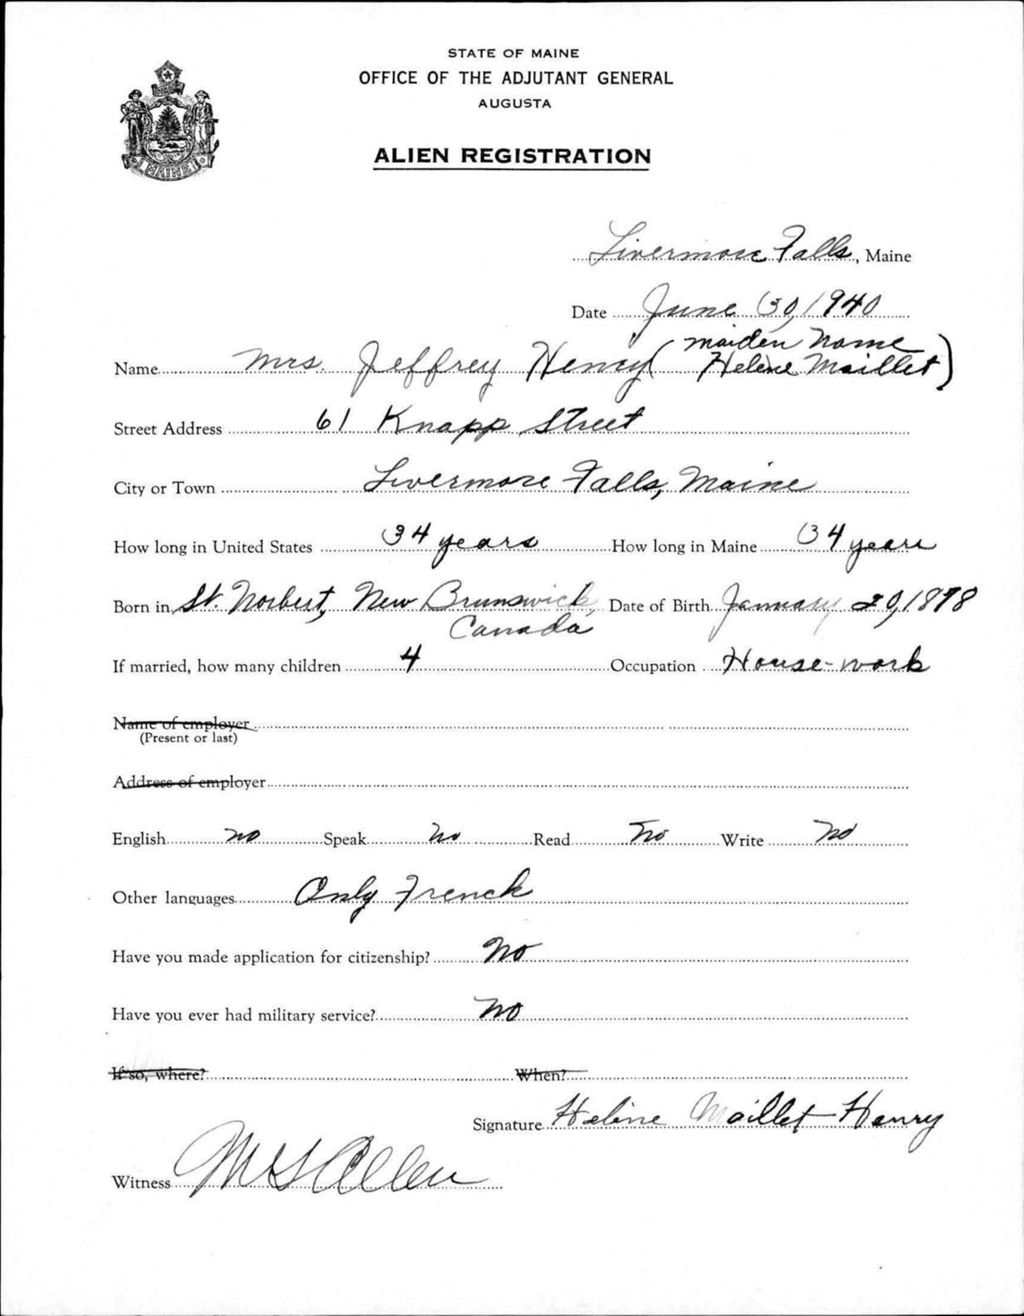 STATE OF MAINE
OFFICE OF THE ADJUTANT GENERAL
AUGUSTA
ALIEN REGISTRATION
MAINE
Livermore Falls, Maine
Date June 30, 1940
Name Mrs. Jeffrey Henry (maiden name Helene Maillet)
Street Address 61 Knapp Street
City or Town Livermore Falls, Maine
How long in United States 34 years How long in Maine 34 years
Born in St. Norbert, New Brunswick, Canada Date of Birth January 20, 1898
If married, how many children 4 Occupation House-work
Name of employer
(Present or last)
Address of employer
English no Speak no Read no Write no
Other languages Only French
Have you made application for citizenship? No
Have you ever had military service? No
If so, where? When?
Signature Helene Maillet Henry
Witness M S Allen